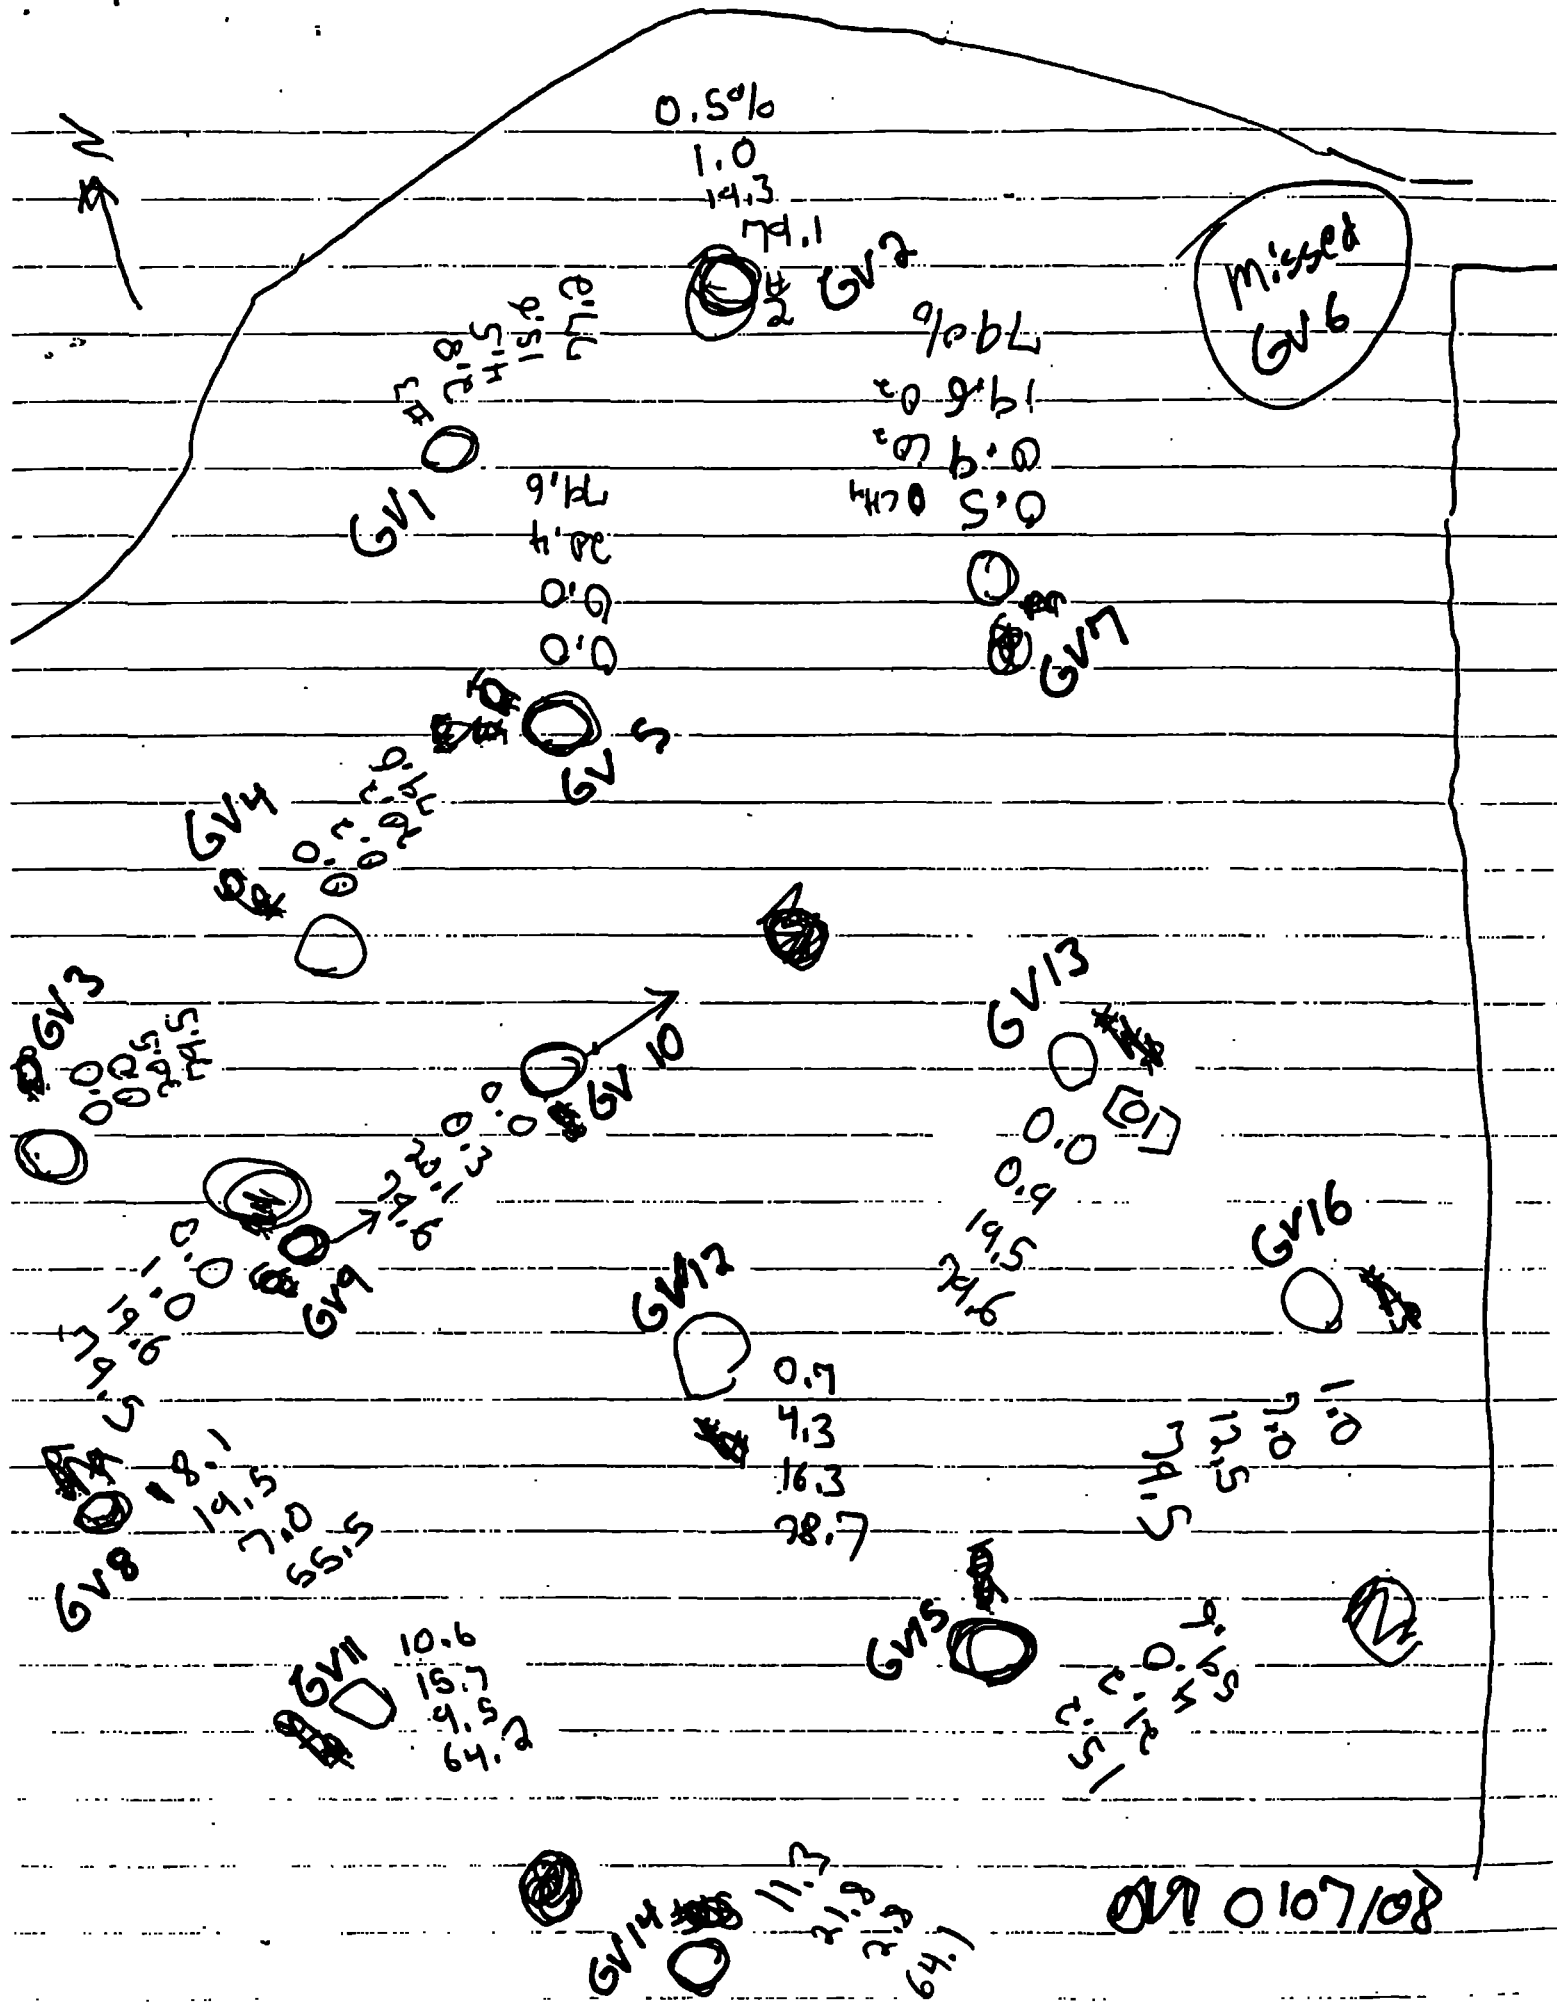 N
0.5%
1.0
19.3
79.1
#2
GV2
missed
GV6
#3
2.8
GV1
79%
19.6 O2
0.9 CO2
0.5 CH4
GV7
79.6
20.4
0.0
0.0
GV 5
GV4
0.0
0.2
20.2
79.6
GV3
0.0
0.0
20.5
79.5
GV 10
0.0
0.3
20.1
79.6
GV9
0.0
1.0
19.6
79.5
GV13
0.0
0.9
19.5
79.6
GV16
1.0
7.0
12.5
79.5
GV12
0.7
4.3
16.3
78.7
GV8
18.1
19.5
7.0
55.5
GV11
10.6
15.7
9.5
64.2
GV15
15.2
21.2
4.0
59.6
GV14
11.3
21.8
2.8
64.1
0107/08